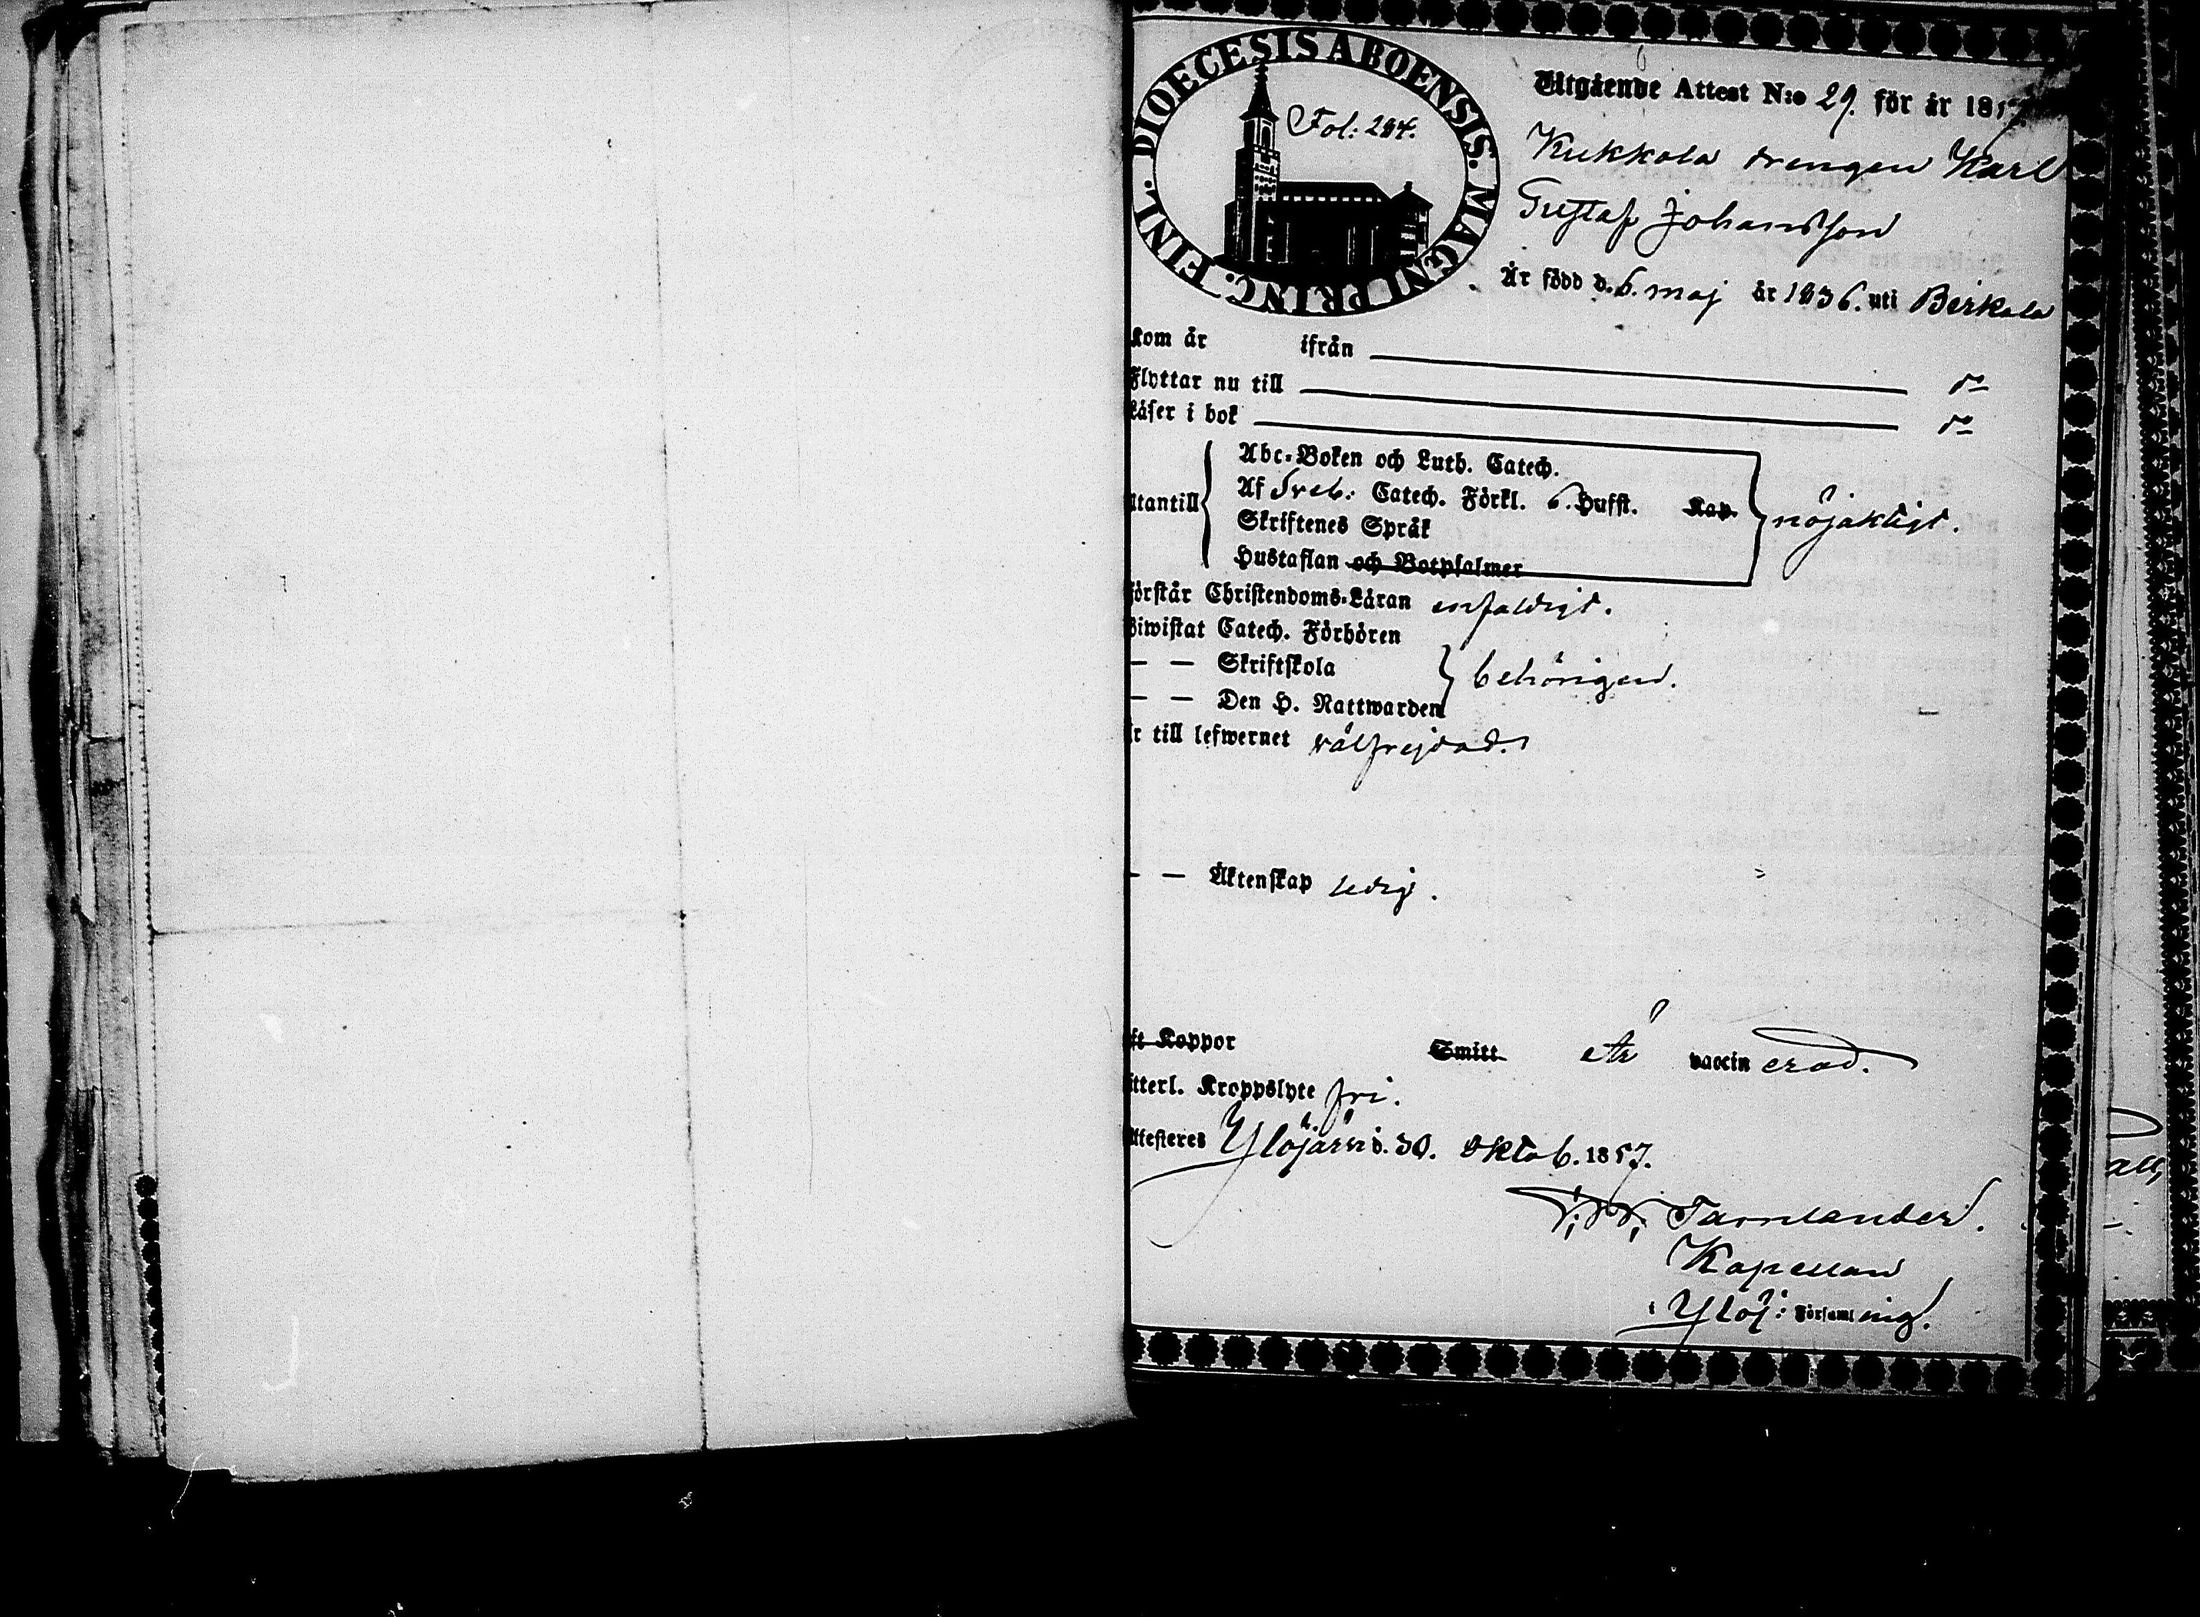 DIOECESIS ABOENSIS. MAGNI PRINC. FINL.
Fol: 204.
Utgående Attest N:o 29. för år 1857.
Kukkola drengen Karl
Gustaf Johansson
Är född d. 6. maj år 1836. uti Birkala
Kom år ifrån
Flyttar nu till do
Läser i bok do
Utantill
Abc-Boken och Luth. Catech.
Af Sveb: Catech. Förkl. 6. Hufst. Kap. nöjaktigt.
Skriftenes Språk
Hustaflan och Botpsalmer
Förstår Christendoms-Läran enfaldigt.
Biwistat Catech. Förhören
— — Skriftskola behörigen.
— — Den H. Nattwarden
är till lefwernet välfrejdad.
— — Äktenskap ledig.
ft Koppor Smitt Är vaccinerad.
itterl. Kroppslyte fri.
Attesteres Ylöjärvi d. 30. Oktob. 1857.
Tarnlander.
Kapellan
i Ylöj: Församlning.